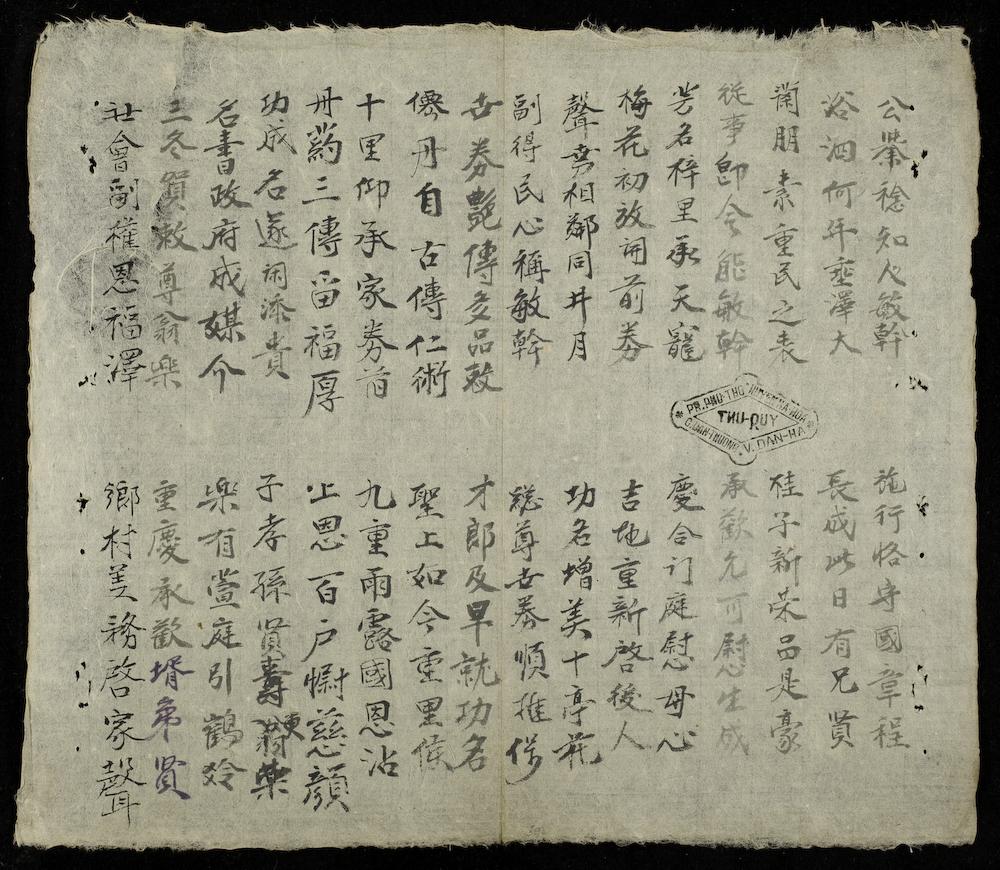 公舉稔知人敏幹
施行恪守國章程
浴泗何年垂澤大
長成此日有兄賢
蘭朋素重民之表
桂子新荣品是豪
從事即今能敏幹
承歡允可慰生成
芳名梓里承天寵
慶合门庭慰母心
梅花初放開前券
吉地重新啓後人
聲相鄰同井月
功名增美十亭花
副得民心稱敏幹
総尊世券順推保
世券艶傳多品敕
才郎及早就功名
僊丹自古傳仁術
聖上如今重里候
十里仰承家券首
九重雨露國恩沾
丹葯三傳留福厚
上恩百户慰慈顔
功成名遂闲添貴
子孝孫賢壽更榮
名書政府成媒介
樂有萱庭引鶴
三冬賀敕尊翁樂
重慶承歡壻弟賢
社會副權恩福澤
鄉村美務啓家聲
PR.PHU-THO HUYEN HA-HOA
THU-QUY
C.DAN-THUONG V.DAN-HA